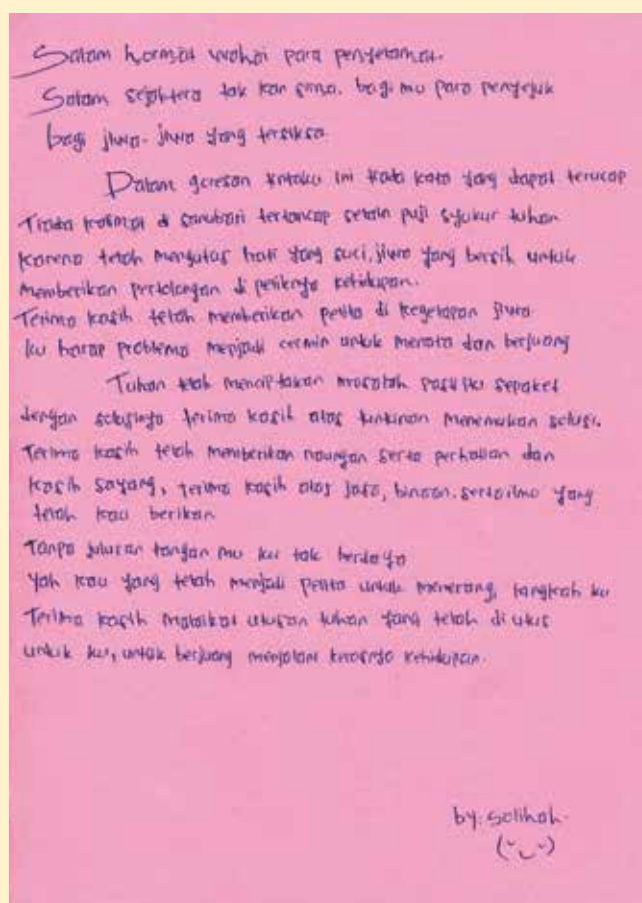 Salam hormat wahai para penyelamat.
Salam sejahtera tak kan sirna. bagi mu para penyejuk
bagi jiwa-jiwa yang tersiksa.
Dalam goresan tintaku ini kata kata yang dapat terucap
Tiada kalimat di sanubari tertancap selain puji syukur tuhan
karena telah mengutus hati yang suci, jiwa yang bersih untuk
memberikan pertolongan di peliknya kehidupan.
Terima kasih telah memberikan pelita di kegelapan jiwa
ku harap problema menjadi cermin untuk menata dan berjuang
Tuhan telah menciptakan masalah pasti itu sepaket
dengan solusinya terima kasih atas menemukan solusi.
Terima kasih telah memberikan naungan serta perhatian dan
kasih sayang, terima kasih atas jasa, binaan. serta ilmu yang
telah kau berikan
Tanpa uluran tangan mu ku tak berdaya
Yah kau yang telah menjadi pelita untuk menerang, langkah ku
Terima kasih malaikat utusan tuhan yang telah di utus
untuk ku, untuk berjuang menjalani kerasnya kehidupan.
by: solihah.
(˘⌣˘)